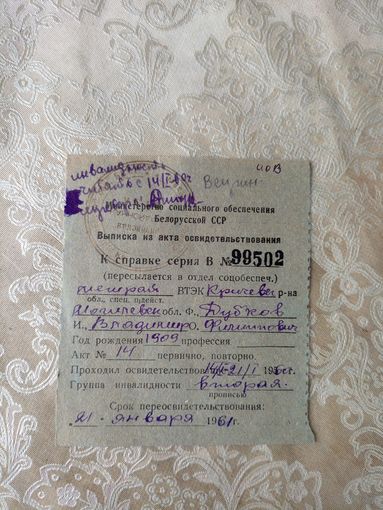 инвалидность
считать с 14/I
Министерство социального обеспечения
Белорусской ССР
Выписка из акта освидетельствования
К справке серия В № 99502
(пересылается в отдел соцобеспеч.)
ВТЭК Кричевск р-на
обл., спец. пдейст.
Могилевск обл. Ф.
И. Владимир О. Филиппович
Год рождения 1909 профессия
Акт № 14 первично, повторно.
Проходил освидетельствов. 14/I-21/I 19
Группа инвалидности вторая.
прописью
Срок переосвидетельствования:
21. января 1961г.